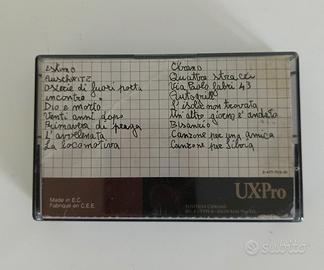 eskimo
Auschwitz
Osteria di fuori porta
incontro
Dio è morto
Venti anni dopo
Primavera di praga
L'avvelenata
La locomotiva
Cirano
Quattro stracci
Via Paolo Fabbri 43
Autogrill
L'isola non trovata
Un altro giorno è andato
Bisanzio
Canzone per una amica
Canzone per Silvia
Made in E.C.
Fabriqué en C.E.E.
UX-Pro
subito